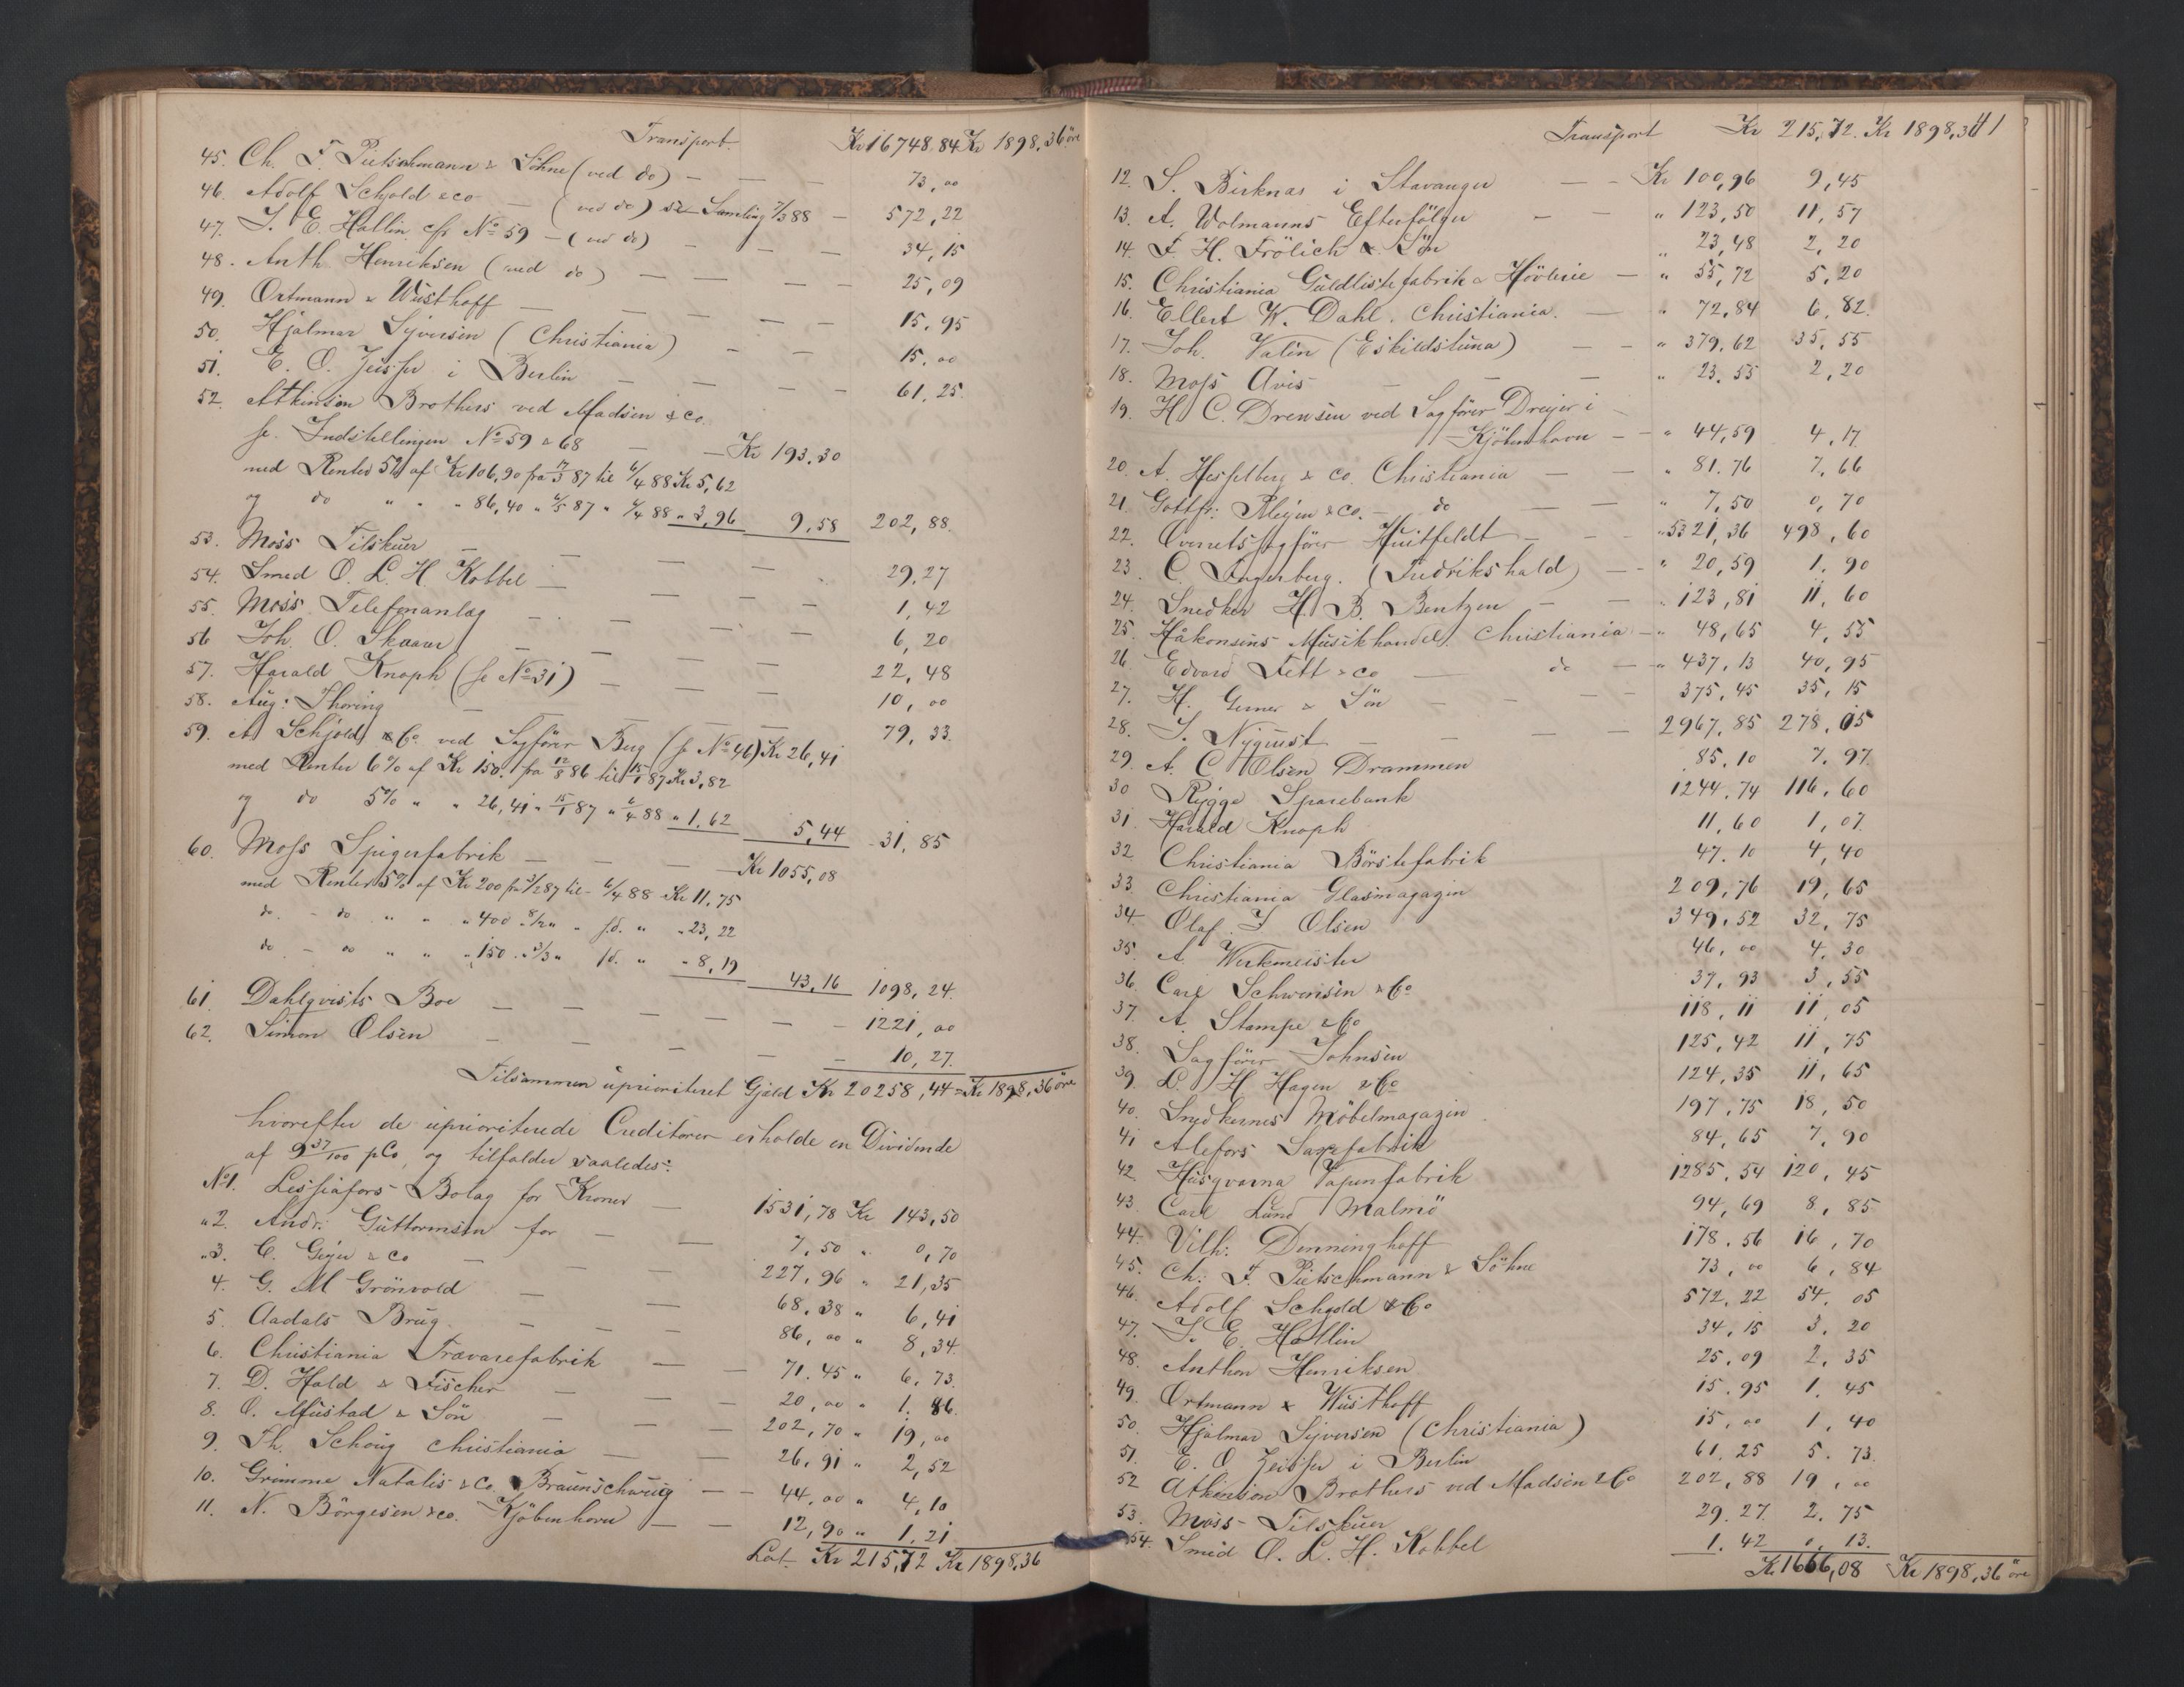 Transport. Kr 16748.84 Kr 1898,36 öre
45. Ch. F. Pietschmann & Söhne (ved do) — — — 73,00
46. Adolf Schjold & co — (ved do) Samling 7/3 88 — 572,22
47. J. E. Hallin cfr No 59 — (ved do) — — — 34,15
48. Anth. Henriksen (ved do) — — — — 25,09
49. Ortmann & Wüsthoff — — — — — 15,95
50. Hjalmar Syversen (Christiania) — — 15,00
51. E. O. Zeisser i Berlin — — — — 61,25.
52. Atkinson Brothers ved Madsen & co.
se Indstillingen No 59 & 68 — — Kr 193.30
med Renter 5% af Kr 106,90 fra 17/3 87 til 6/4 88 Kr 5,62
og do " " " 86,40 " 6/5 87 " 6/4 88 " 3,96 9,58 202,88.
53. Moss Tilskuer — — — — 29,27
54. Smed O. L. H. Kobbel — — — — 1,42
55. Moss Telefonanlæg — — — — 6,20
56 Joh. O. Skaarer — — — — 22,48
57. Harald Knoph (se No 31) — — — 10,00
58. Aug: Thoring — — — — 79,33.
59. A Schjold & Co ved Sagförer Berg (se No 46) Kr 26,41
med Renter 6% af Kr 150. fra 12/8 86 til 15/1 87 Kr 3,82
og do 5% " " 26,41 " 15/1 87 " 6/4 88 " 1.62 5,44 31,85
60. Moss Spigerfabrik — — — Kr 1055,08
med Renter 5% af Kr 200 fra 3/2 87 til 6/4 88 Kr 11,75
do. — do " " " 400 " 8/2 " " s.d. " " 23,22
do — do " " " 150 " 3/3 " s.d. " " 8,19 43,16 1098,24.
61. Dahlqvists Bo — — — — — 1221,00
62. Simon Olsen — — — — — 10,27.
Tilsammen uprioriteret Gjæld Kr 20258,44 = Kr 1898,36 öre
hvorefter de uprioriterede Creditorer erholde en Dividende
af 9 37/100 pCo, og tilfalder saaledes:
No 1. Lessjöfors Bolag for Kroner — 1531,78 Kr 143,50
" 2. Andr: Guttormsen for — — 7,50 " 0,70
" 3. C. Geijer & co — — — 227,96 " 21,35
4. G. M Grönvold — — 68.38 " 6,41
5. Aadals Brug — — — 86,00 " 8,34.
6. Christiania Trævarefabrik — — 71.45 " 6,73.
7. D. Hald & Fischer — — 20,00 " 1.86.
8. O. Mustad & Sön — — 202,70 " 19,00
9. Th. Schoug Christiania — — 26,91 " 2,52
10. Grimme Natalis & Co. Braunschweig — — 44,00 " 4,10
11. N. Börgesen & co. Kjöbenhavn — — 12,90 " 1,21
Lat. Kr 215,72 Kr 1898,36
Transport Kr 215,72. Kr 1898,36 41
12. S. Birknas i Stavanger — — Kr 100,96 9,45
13. A. Wolmanns Efterfölger — — " 123,50 11,57
14. F. H. Frölich & Sön " 23,48 2,20
15. Christiania Guldlistefabrik & Hövlerie — " 55,72 5,20
16. Ellert K. Dahl. Christiania. — " 72,84 6,82.
17. Joh. Valin (Eskildstuna) — — " 379.62 35.55
18. Moss Avis — — — " 23.55 2,20
19. H. C. Drensen ved Sagförer Dreijer i
Kjöbenhavn — — " 44,59 4,17.
20. A. Hesselberg & co. Christiania — — " 81.76 7.66
21. Gottfr: Meyer & co. — do — — " 7,50 0,70
22. Overretssagförer Huitfeldt — — — " 5321,36 498,60
23. C. Fagerberg. (Fredrikshald) — — " 20,59 1.90
24. Snedker H. B. Bentzen — — " 123,81 11.60
25. Håkonsens Musikhandel. Christiania — " 48,65 4,55
26. Edvard Fett & co — do — — " 437,13 40,95
27. H. Gerner & Sön — — — — 375,45 35,15
28. J. Nyquist — — — — 2967,85 278,05
29. A. C. Olsen Drammen 85.10 7.97.
30 Rygge Sparebank 1244.74 116.60
31. Harald Knoph 11,60 1,07.
32. Christiania Börstefabrik 47.10 4,40
33. Christiania Glasmagazin 209,76 19,65
34. Olaf. F. Olsen 349,52 32,75
35. A. Werkmeister 46,00 4.30
36. Carl Schwensen & Co 37,93 3,55
37. A. Stampe & Co 118,11 11,05
38. Sagförer Johnsen 125,42 11,75
39. L. H Hagen & Co 124,35 11,65
40. Snedkernes Möbelmagazin 197,75 18,50
41 Alefors Saxefabrik 84,65 7,90
42. Husqvarna Vapenfabrik 1285.54 120,45
43. Carl Lund Malmö 94,69 8,85
44. Vilh: Denninghoff 178.56 16,70
45. Ch: F. Pietschmann & Söhne 73,00 6,84
46. Adolf Schjold & Co 572,22 54,05
47. J. E. Hallin 34,15 3.20
48. Anthon Henriksen 25,09 2,35
49. Ortmann & Wüsthoff 15.95 1.45
50. Hjalmar Syversen (Christiania) 15,00 1.40
51. E. O Zeisser i Berlin 61.25 5.73.
52 Atkinson Brothers ved Madsen & Co 202,88 19,00
53. Moss Tilskuer 29.27. 2.75
54. Smed O. L. H. Kobbel 1.42 0.13.
Kr 1666,08 Kr 1898,36 öre